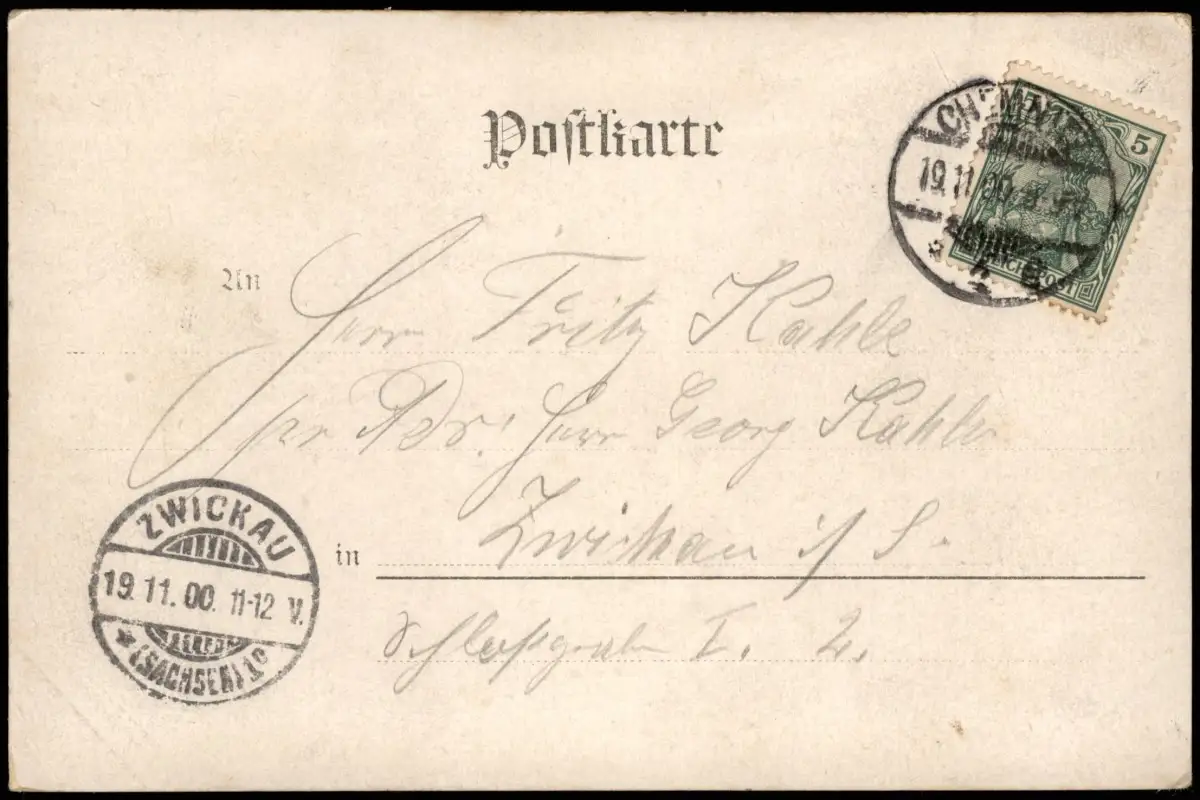 Postkarte
CHEMNITZ
19.11.00.
4
5
REICHSPOST
An
Herrn Fritz Kahle
per Adr: Herrn Georg Kahle
in Zwickau i/S.
Schloßgraben I. 2.
ZWICKAU
19.11.00. 11-12 V.
(SACHSEN) 1